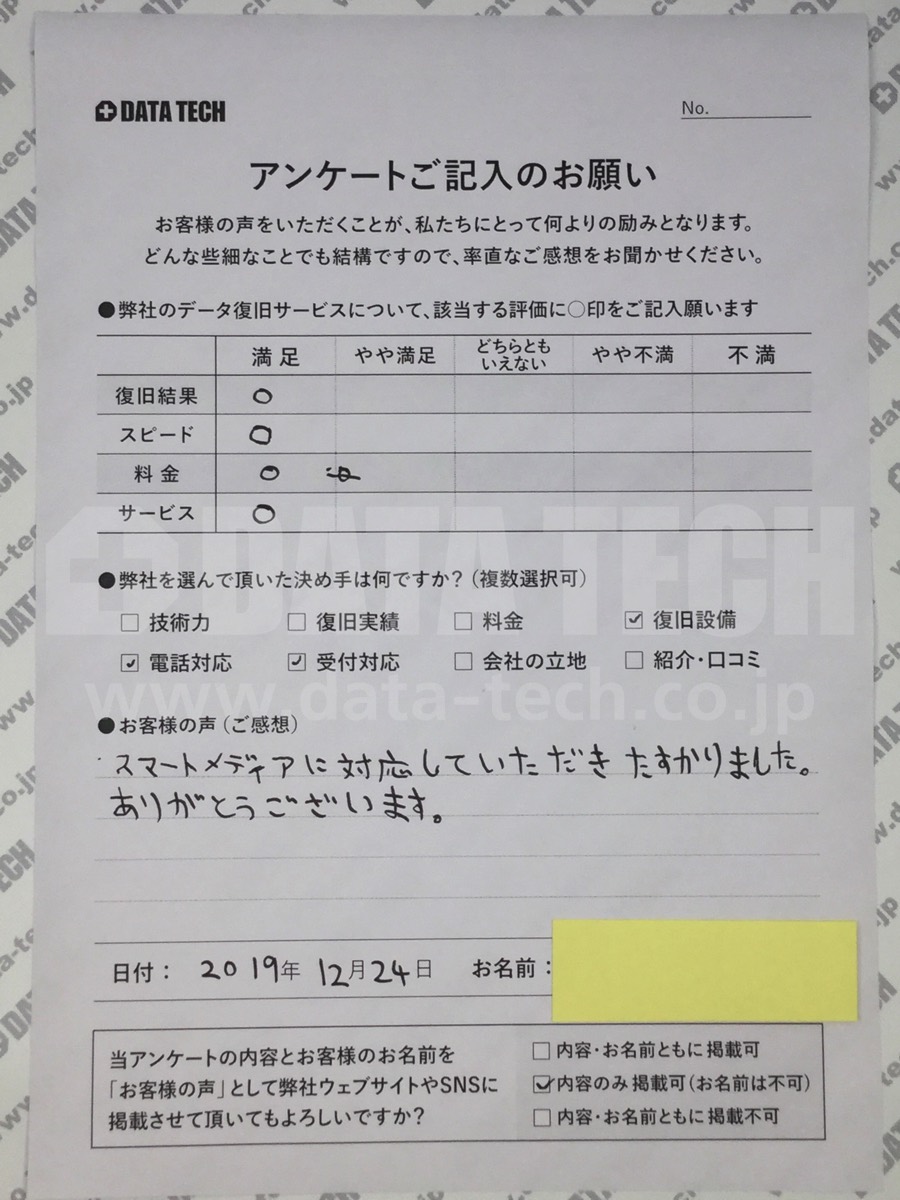 DATA TECH
No.
アンケートご記入のお願い
お客様の声をいただくことが、私たちにとって何よりの励みとなります。
どんな些細なことでも結構ですので、率直なご感想をお聞かせください。
●弊社のデータ復旧サービスについて、該当する評価に○印をご記入願います
満足 やや満足 どちらともいえない やや不満 不満
復旧結果 ○
スピード ○
料金 ○
サービス ○
●弊社を選んで頂いた決め手は何ですか?(複数選択可)
□ 技術力 □ 復旧実績 □ 料金 ☑ 復旧設備
☑ 電話対応 ☑ 受付対応 □ 会社の立地 □ 紹介・口コミ
DATA TECH
www.data-tech.co.jp
●お客様の声(ご感想)
スマートメディアに対応していただきたすかりました。
ありがとうございます。
日付: 2019年 12月24日 お名前:
当アンケートの内容とお客様のお名前を
「お客様の声」として弊社ウェブサイトやSNSに
掲載させて頂いてもよろしいですか?
□ 内容・お名前ともに掲載可
☑ 内容のみ掲載可(お名前は不可)
□ 内容・お名前ともに掲載不可